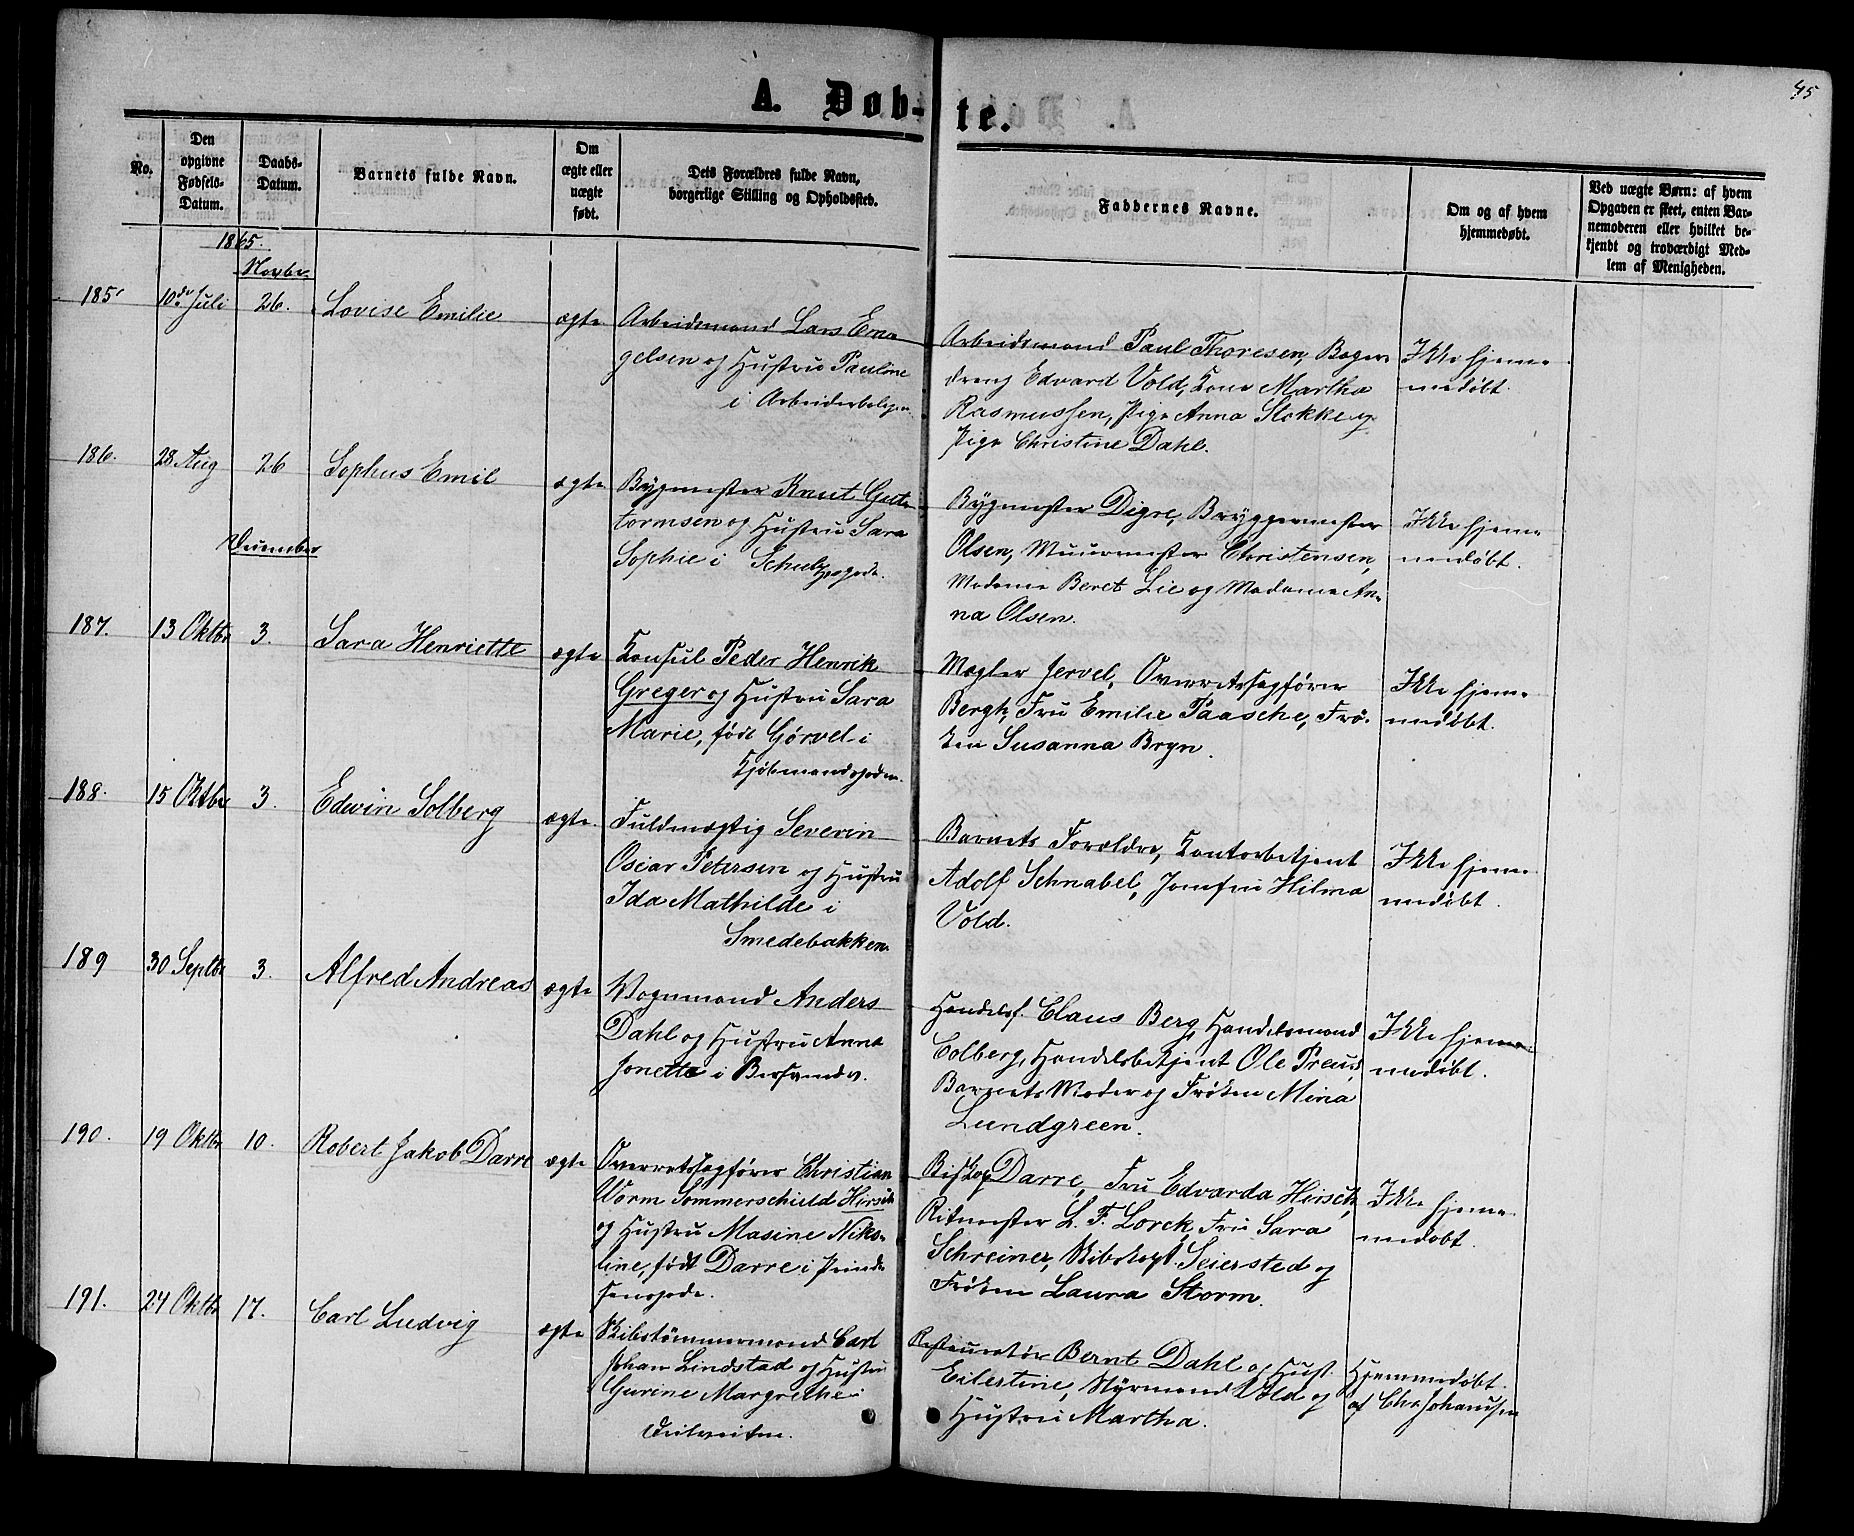 45
A. Døbte.
No.
Den opgivne Fødsels-Datum.
Daabs-Datum.
Barnets fulde Navn.
Om ægte eller uægte født.
Dets Forældres fulde Navn, borgerlige Stilling og Opholdssted.
Faddernes Navne.
Om og af hvem hjemmedøbt.
Ved uægte Børn: af hvem Opgaven er skeet, enten Barnemoderen eller hvilket bekjendt og troværdigt Medlem af Menigheden.
1865.
Novbr.
185
10de Juli
26.
Lovise Emilie
ægte
Arbeidsmand Lars En-
gelsen og Hustru Pauline
i Arbeiderbolig
Arbeidsmand Paul Thoresen, Bager-
dreng Edvard Vold, Kone Martha
Rasmussen, Pige Anna Stokke og
Pige Christine Dahl.
Ikke hjem-
medøbt.
186.
28 Aug
26
Sophus Emil
ægte
Bygmester Knut Gut-
tormsen og Hustru Sara
Sophie i Schultzegade.
Bygmester Digre, Bryggermester
Olsen, Muurmester Christensen,
Madame Beret Lie og Madame An-
na Olsen.
Ikke hjem-
medøbt.
December
187.
13 Oktbr
3.
Sara Henriette
ægte
Konsul Peder Henrik
Greger og Hustru Sara
Marie, født Gørvel i
Kjøbmandsgaden.
Mægler Jervel, Overretssagfører
Bergh, Fru Emilie Paasche, Frø-
ken Susanna Bryn.
Ikke hjem-
medøbt.
188.
15 Oktbr
3.
Edwin Solberg
ægte.
Fuldmægtig Severin
Oscar Petersen og Hustru
Ida Mathilde i
Smedebakken.
Barnets Forældre, Kontorbetjent
Adolf Schnabel, Jomfru Hilma
Vold.
Ikke hjem-
medøbt.
189
30 Septbr
3.
Alfred Andreas
ægte
Vognmand Anders
Dahl og Hustru Anna
Jonette i
Handelsf. Claus Berg, Handelsmand
Colberg, Handelsbetjent Ole Preus,
Barnets Moder og Frøken Mina
Lundgreen.
Ikke hjem-
medøbt.
190.
19 Oktbr
10.
Robert Jakob Darre
ægte
Overretssagfører Christian
Worm Sommerschield Hirsch
og Hustru Masine Niko-
line, født Darre i Prind-
sensgade.
Biskop Darre, Fru Edvarda Hirsch,
Ritmester L. F. Lorck, Fru Sara
Schreiner, Skibskapt. Seiersted og
Frøken Laura Storm.
Ikke hjem-
medøbt.
191.
24 Oktbr
17.
Carl Ludvig
ægte
Skibstømmermand Carl
Johan Lindstad og Hustru
Gurine Margrethe i
Restauratør Bernt Dahl og Hust.
Eilertine, Styrmand Vold og
Hustru Martha.
Hjemmedøbt
af Chr. Johansen